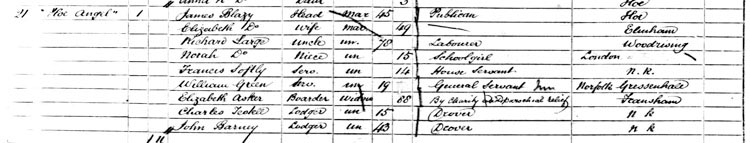 3 Hoe
21 "Hoe Angel" 1 James Blazy Head Mar 45 Publican Hoe
Elizabeth Do Wife Mar 49 Elmham
Richard Large Uncle Un. 78 Labourer Woodrising
Norah Do Niece Un 15 Schoolgirl London
Frances Softly Serv. Un 14 House Servant N. K.
William Green Serv. Un 19 General Servant Inn Norfolk Gressenhall
Elizabeth Asker Boarder Widow 88 By Charity and parochial relief Fransham
Charles Lodger Un 15 Drover N K
John Barney Lodger Un 43 Drover N K